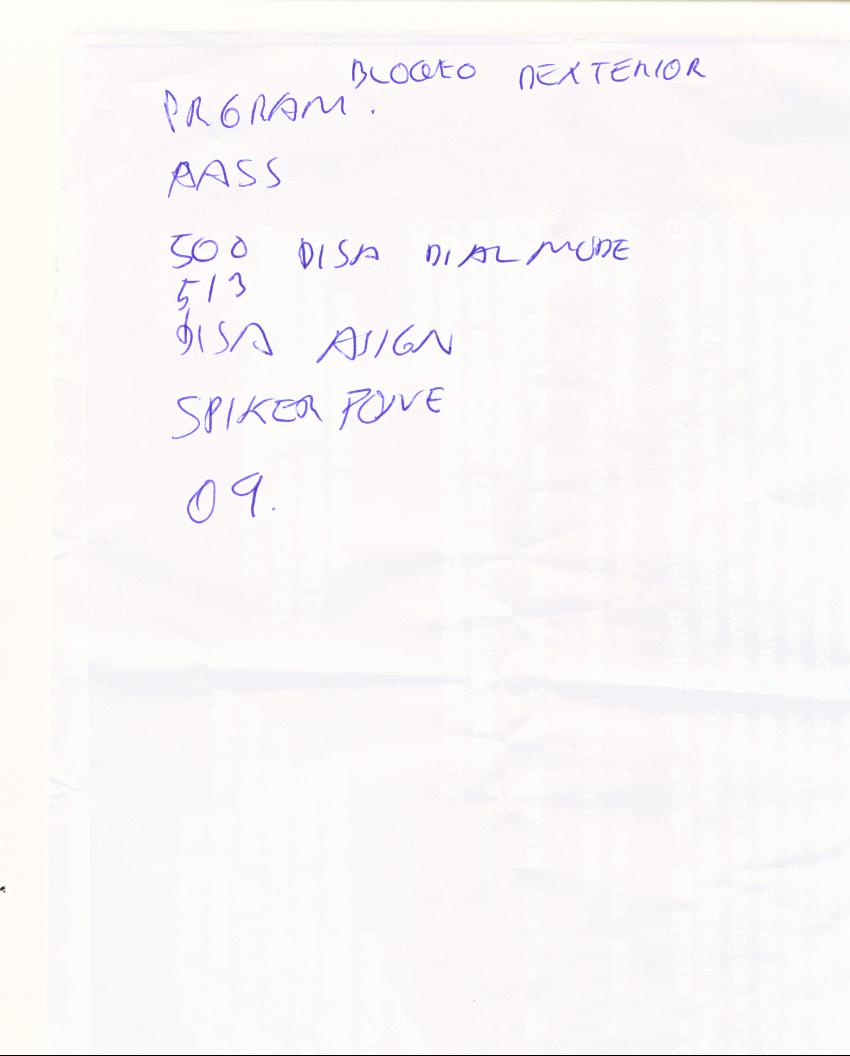 BLOQEO DEXTERIOR
PRGRAM.
PASS
500 DISA DIAL MODE
513
DISA ASIGN
SPIKER FONE
09.